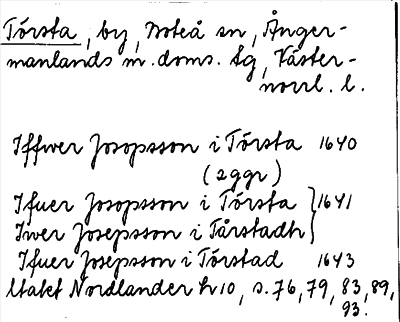 Törsta, by, Noteå sn, Ånger-
manlands m. doms. tg, Väster-
norrl. l.
Iffwer Josopsson i Törsta 1640
(2ggr)
Ifuer Josopsson i Törsta } 1641
Iwer Josepsson i Tårstadh
Ifuer Josepsson i Törstad 1643
Utakt Nordlander h 10, s. 76, 79, 83, 89,
93.